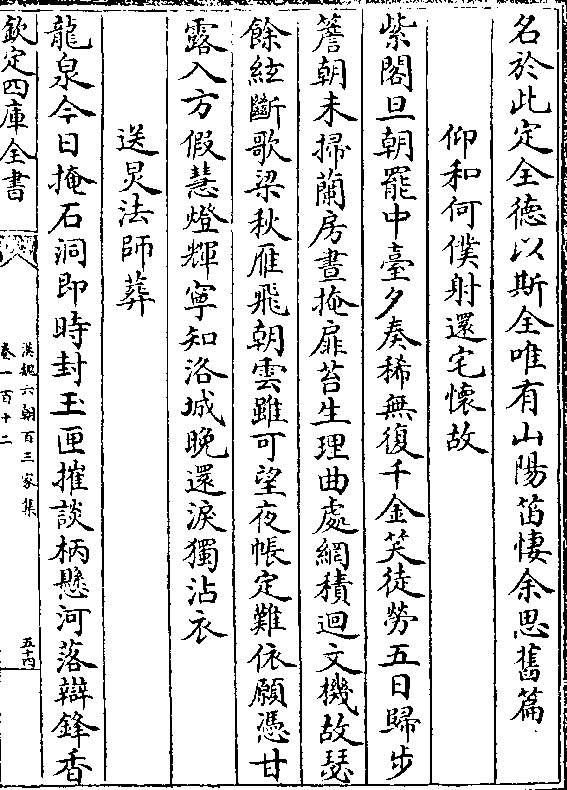 名於此定全德以斯全唯有山陽笛悽余思舊篇
仰和何僕射還宅懷故
紫閣旦朝罷中臺夕奏稀無復千金笑徒勞五日歸步
簷朝未掃蘭房晝掩扉苔生理曲處網積迴文機故瑟
餘絃斷歌梁秋雁飛朝雲雖可望夜帳定難依願憑甘
露入方假慧燈輝寧知洛城晚還淚獨沾衣
送炅法師葬
龍泉今日掩石洞即時封玉匣摧談柄懸河落辯鋒香
欽定四庫全書
漢魏六朝百三家集
卷一百十二
五十四